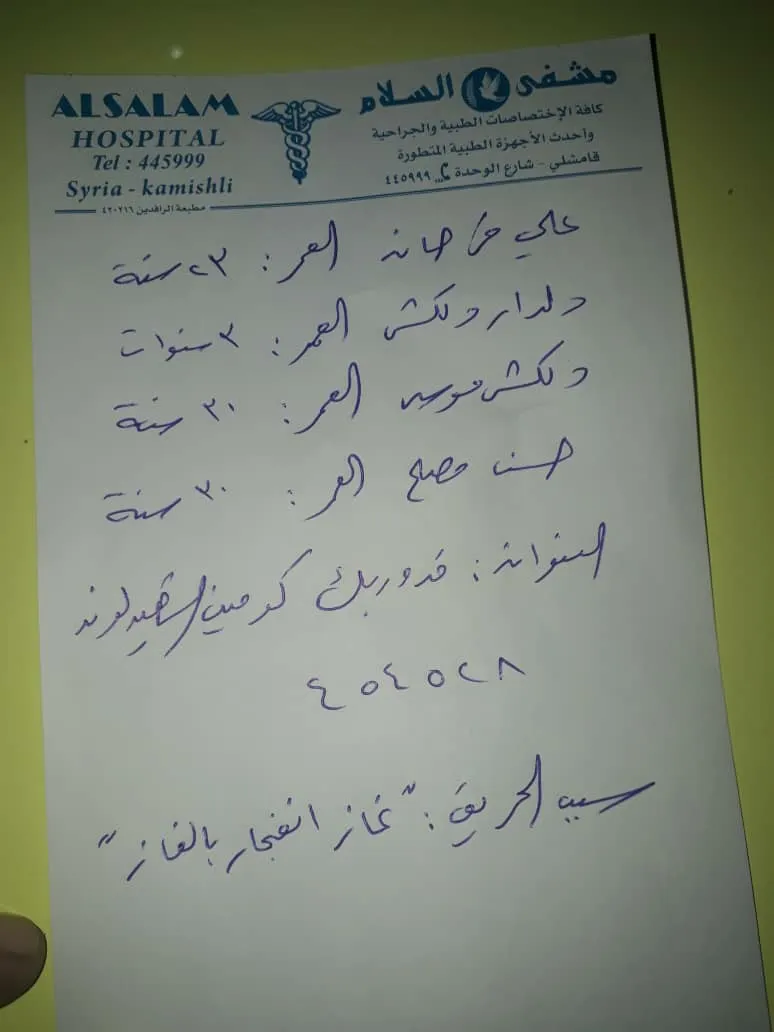 ALSALAM
HOSPITAL
Tel : 445999
Syria - kamishli
مشفى السلام
كافة الإختصاصات الطبية والجراحية
وأحدث الأجهزة الطبية المتطورة
قامشلي - شارع الوحدة ٤٤٥٩٩٩
مطبعة الرافدين ٤٢٠٢١٦
علي العمر : ٢٣ سنة
دلدار دلكش العمر : ٣ سنوات
دلكش موسى العمر : ٣٠ سنة
حسن مصلح العمر : ٣٠ سنة
العنوان : قدوربك كومين الشهيد لوند
٤٥٤٥٢٨
سبب الحريق : " غاز انفجار بالغاز "